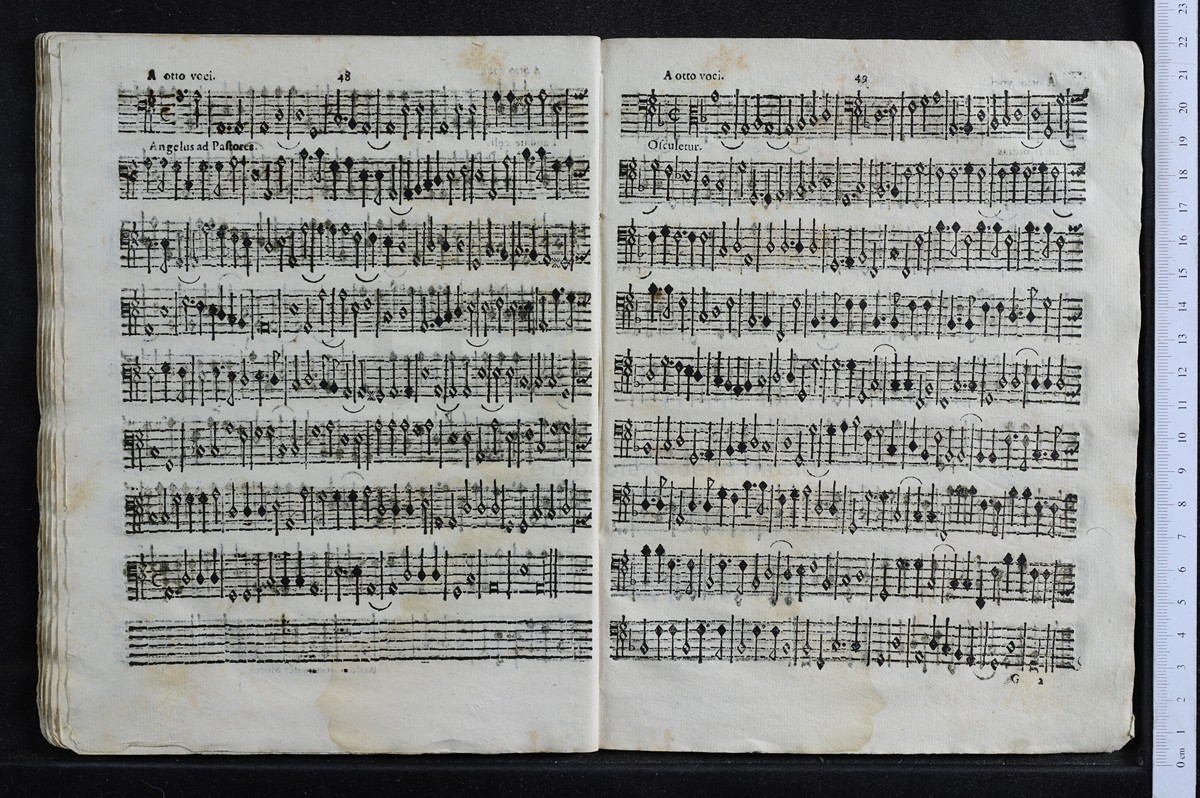 A otto voci. 48
Angelus ad Paſtores.
A otto voci. 49
Oſculetur.
G 2
23
22
21
20
19
18
17
16
15
14
13
12
11
10
9
8
7
6
5
4
3
2
1
0 cm